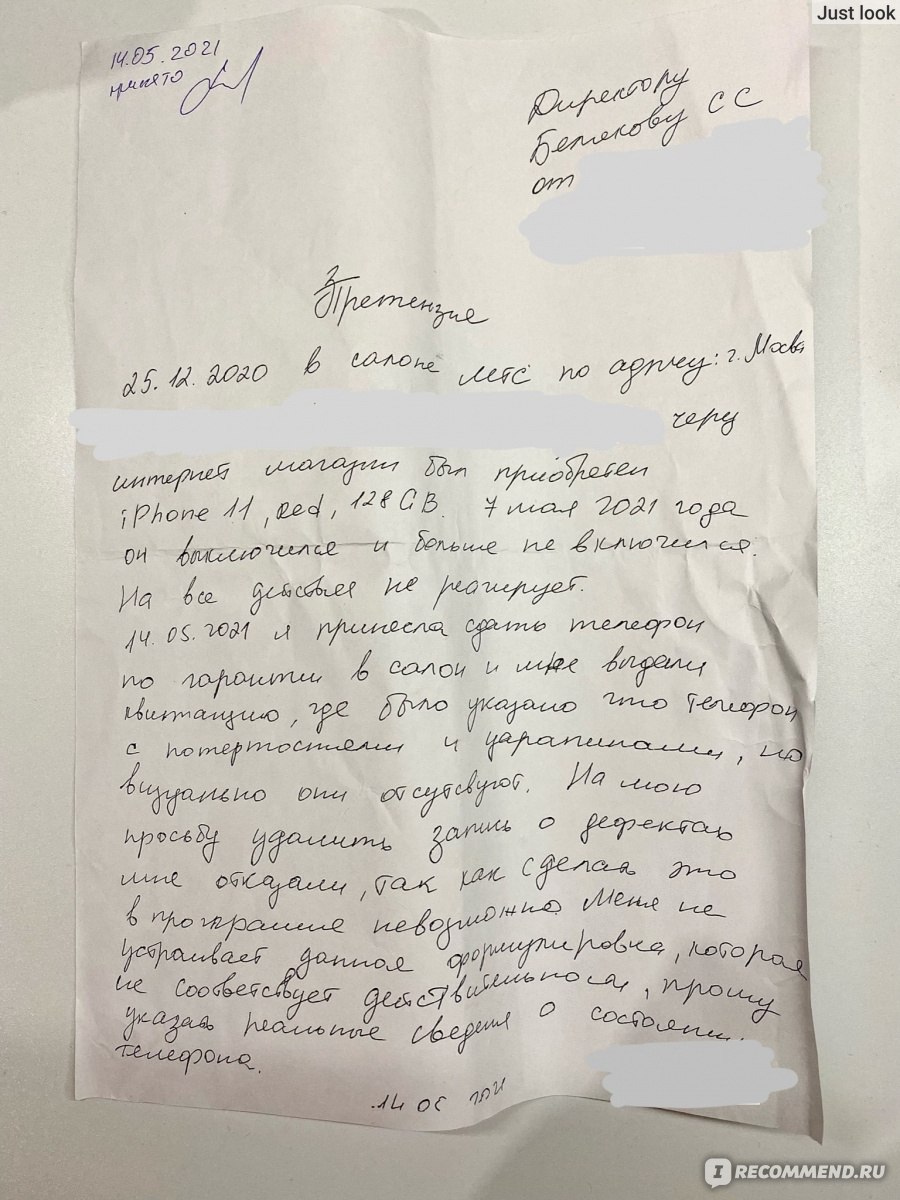 Just look
14.05.2021
принято
Директору
Белякову С С
от
Претензия
25.12.2020 в салоне МТС по адресу: г. Москва
через
интернет магазин был приобретен
iPhone 11, red, 128 GB. 7 мая 2021 года
он выключился и больше не включился.
На все действия не реагирует.
14.05.2021 я принесла сдать телефон
по гарантии в салон и мне выдали
квитанцию, где было указано что телефон
с потертостями и царапинами, но
визуально они отсутсвуют. На мою
просьбу удалить запись о дефектах
мне отказали, так как сделать это
в программе невозможно. Меня не
устраивает данная формулировка, которая
не соответствует действительности, прошу
указать реальные сведения о состоянии
телефона.
14 05 2021
IRECOMMEND.RU